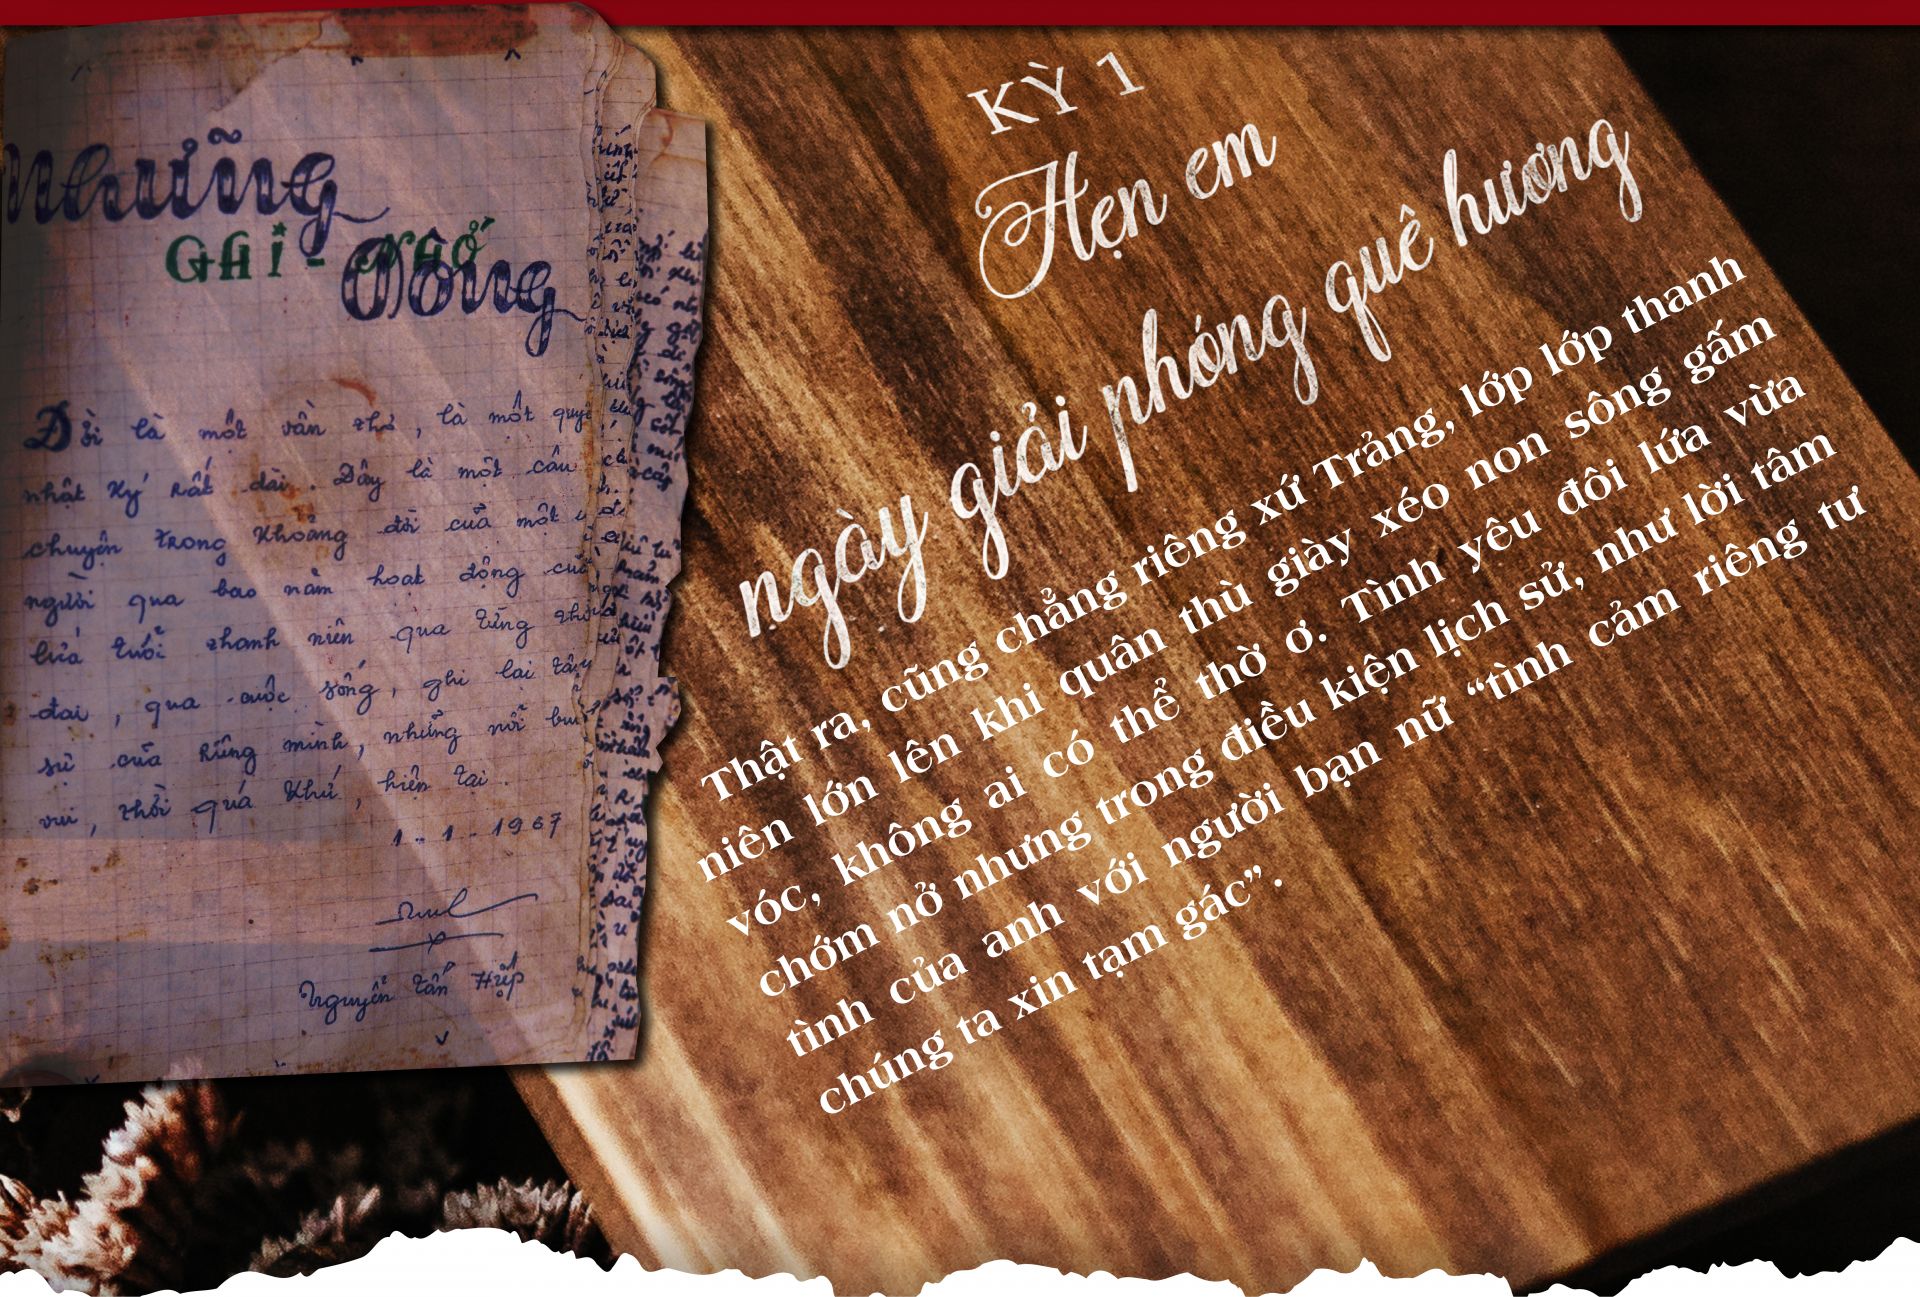 Những
GHI - NHỚ
dòng
Đời là một vần thơ, là một quyể
nhật ký rất dài. Đây là một câu
chuyện trong khoảng đời của một
người qua bao năm hoạt động của
lứa tuổi thanh niên qua từng thờ
đai, qua cuộc sống, ghi lại tâm
sự của riêng mình, những nỗi bu
vui, thời quá khứ, hiện tại.
1-1-1967
Nguyễn Tấn Hiệp
KỲ 1
Hẹn em
ngày giải phóng quê hương
Thật ra, cũng chẳng riêng xứ Trảng, lớp lớp thanh
niên lớn lên khi quân thù giày xéo non sông gấm
vóc, không ai có thể thờ ơ. Tình yêu đôi lứa vừa
chớm nở nhưng trong điều kiện lịch sử, như lời tâm
tình của anh với người bạn nữ “tình cảm riêng tư
chúng ta xin tạm gác”.